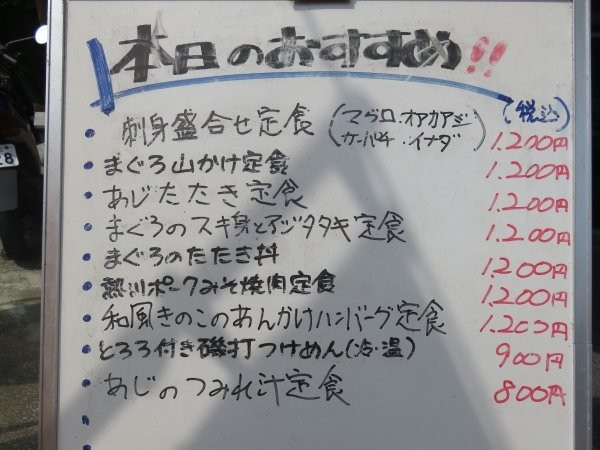 本日のおすすめ!!
(税込)
・刺身盛合せ定食 (マグロ・オアカアジ カンパチ・イナダ) 1.200円
・まぐろ山かけ定食 1.200円
・あじたたき定食 1.200円
・まぐろのスキ身とアジタタキ定食 1.200円
・まぐろのたたき丼 1200円
・熱川ポークみそ焼肉定食 1.200円
・和風きのこのあんかけハンバーグ定食 1.200円
・とろろ付き磯打つけめん(冷・温) 900円
・あじのつみれ汁定食 800円
28